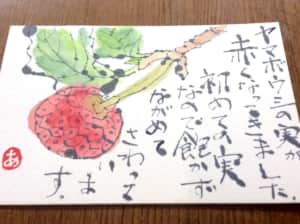 ヤマボウシの実が
赤くなってきました。
初めての実
なので飽かず
ながめて
さわって
います。
あ